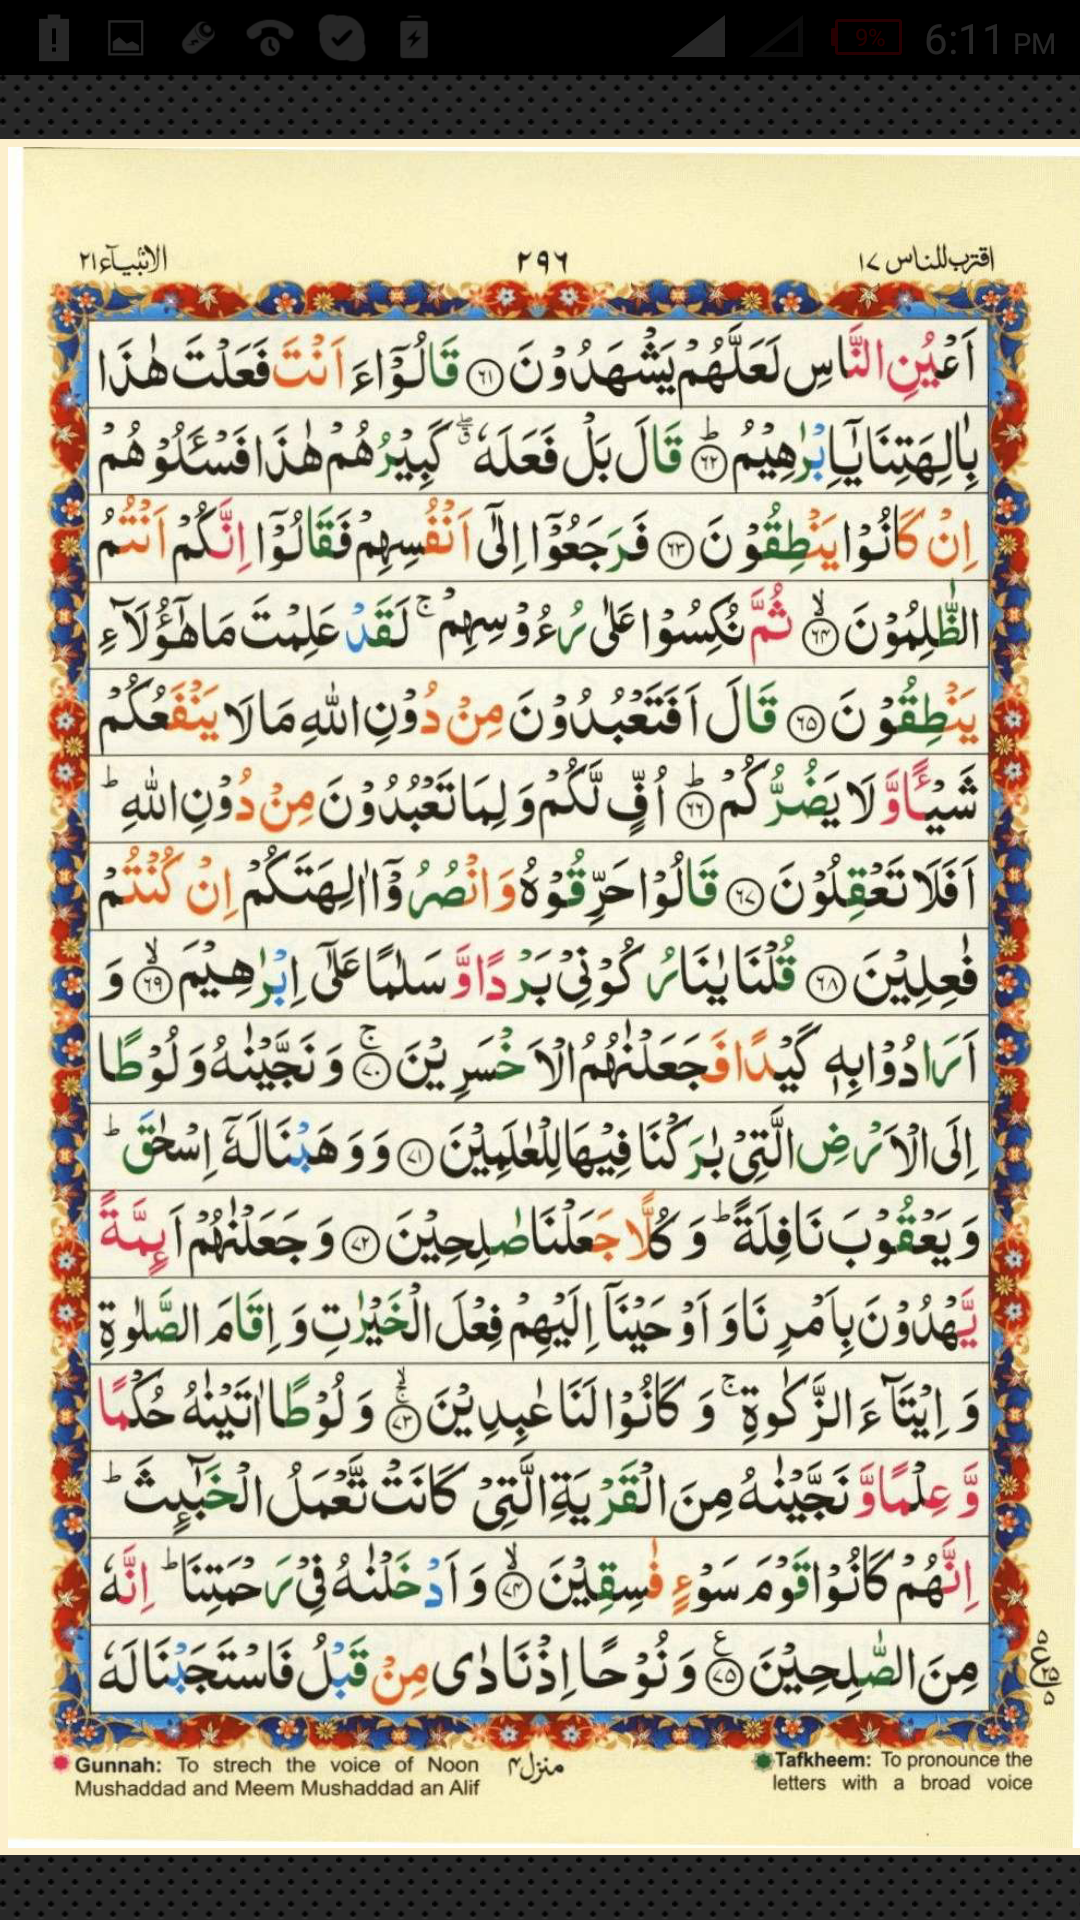 9% 6:11 PM
اقترب للناس ١٧ ٢٩٦ الانبیآء ٢١
اَعْیُنِ النَّاسِ لَعَلَّهُمْ یَشْهَدُوْنَ ﴿٦١﴾ قَالُوْۤا ءَ اَنْتَ فَعَلْتَ هٰذَا
بِاٰلِهَتِنَا یٰۤاِبْرٰهِیْمُ ﴿٦٢﴾ؕ قَالَ بَلْ فَعَلَهٗ ۖۗ كَبِیْرُهُمْ هٰذَا فَسْـَٔلُوْهُمْ
اِنْ كَانُوْا یَنْطِقُوْنَ ﴿٦٣﴾ فَرَجَعُوْۤا اِلٰۤی اَنْفُسِهِمْ فَقَالُوْۤا اِنَّكُمْ اَنْتُمُ
الظّٰلِمُوْنَ ﴿٦٤﴾ۙ ثُمَّ نُكِسُوْا عَلٰی رُءُوْسِهِمْ ۚ لَقَدْ عَلِمْتَ مَا هٰۤؤُلَآءِ
یَنْطِقُوْنَ ﴿٦٥﴾ قَالَ اَفَتَعْبُدُوْنَ مِنْ دُوْنِ اللّٰهِ مَا لَا یَنْفَعُكُمْ
شَیْـًٔا وَّ لَا یَضُرُّكُمْ ﴿٦٦﴾ؕ اُفٍّ لَّكُمْ وَ لِمَا تَعْبُدُوْنَ مِنْ دُوْنِ اللّٰهِ ؕ
اَفَلَا تَعْقِلُوْنَ ﴿٦٧﴾ قَالُوْا حَرِّقُوْهُ وَ انْصُرُوْۤا اٰلِهَتَكُمْ اِنْ كُنْتُمْ
فٰعِلِیْنَ ﴿٦٨﴾ قُلْنَا یٰنَارُ كُوْنِیْ بَرْدًا وَّ سَلٰمًا عَلٰۤی اِبْرٰهِیْمَ ﴿٦٩﴾ۙ وَ
اَرَادُوْا بِهٖ كَیْدًا فَجَعَلْنٰهُمُ الْاَخْسَرِیْنَ ﴿٧٠﴾ۚ وَ نَجَّیْنٰهُ وَ لُوْطًا
اِلَی الْاَرْضِ الَّتِیْ بٰرَكْنَا فِیْهَا لِلْعٰلَمِیْنَ ﴿٧١﴾ وَ وَهَبْنَا لَهٗۤ اِسْحٰقَ ؕ
وَ یَعْقُوْبَ نَافِلَةً ؕ وَ كُلًّا جَعَلْنَا صٰلِحِیْنَ ﴿٧٢﴾ وَ جَعَلْنٰهُمْ اَىِٕمَّةً
یَّهْدُوْنَ بِاَمْرِنَا وَ اَوْحَیْنَاۤ اِلَیْهِمْ فِعْلَ الْخَیْرٰتِ وَ اِقَامَ الصَّلٰوةِ
وَ اِیْتَآءَ الزَّكٰوةِ ۚ وَ كَانُوْا لَنَا عٰبِدِیْنَ ﴿٧٣﴾ۚۙ وَ لُوْطًا اٰتَیْنٰهُ حُكْمًا
وَّ عِلْمًا وَّ نَجَّیْنٰهُ مِنَ الْقَرْیَةِ الَّتِیْ كَانَتْ تَّعْمَلُ الْخَبٰٓىِٕثَ ؕ
اِنَّهُمْ كَانُوْا قَوْمَ سَوْءٍ فٰسِقِیْنَ ﴿٧٤﴾ۙ وَ اَدْخَلْنٰهُ فِیْ رَحْمَتِنَا ؕ اِنَّهٗ
مِنَ الصّٰلِحِیْنَ ﴿٧٥﴾۠ وَ نُوْحًا اِذْ نَادٰی مِنْ قَبْلُ فَاسْتَجَبْنَا لَهٗ
٥ ع ٢٥ ٥
Gunnah: To strech the voice of Noon
Mushaddad and Meem Mushaddad an Alif
منزل ٤
Tafkheem: To pronounce the
letters with a broad voice